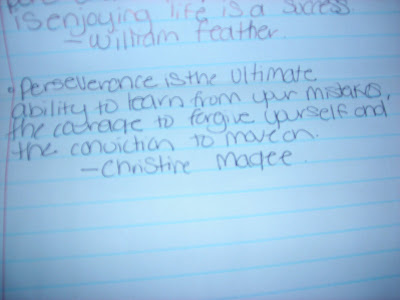 is enjoying life is a success.
- William Feather.
• Perseverance is the ultimate
ability to learn from your mistakes,
the courage to forgive yourself and
the conviction to move on.
- Christine Magee.